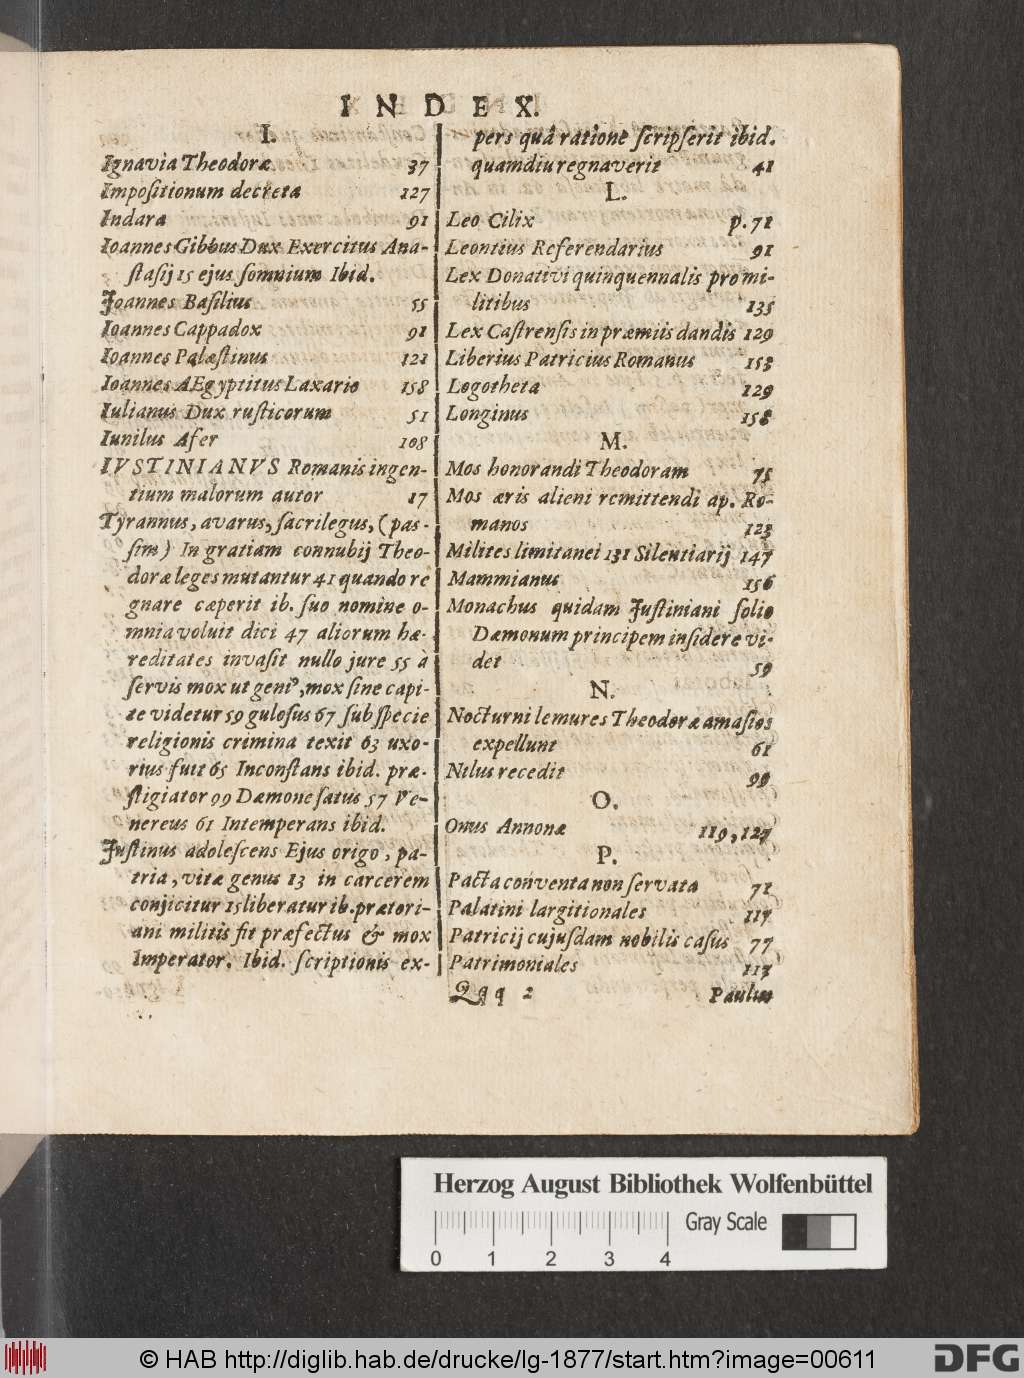 INDEX.
I.
Ignavia Theodoræ 37
Impoſitionum decreta 127
Indara 91
Ioannes Gibbus Dux Exercitus Ana-
ſtaſij 15 ejus ſomnium Ibid.
Joannes Baſilius 55
Ioannes Cappadox 91
Ioannes Palæſtinus 121
Ioannes AEgyptitus Laxario 158
Iulianus Dux ruſticorum 51
Iunilus Afer 108
IVSTINIANVS Romanis ingen-
tium malorum autor 17
Tyrannus, avarus, ſacrilegus, (paſ-
ſim) In gratiam connubij Theo-
doræ leges mutantur 41 quando re
gnare cæperit ib. ſuo nomine o-
mnia voluit dici 47 aliorum hæ-
reditates invaſit nullo jure 55 à
ſervis mox ut geniꝰ, mox ſine capi-
te videtur 59 guloſus 67 ſub ſpecie
religionis crimina texit 63 uxo-
rius fuit 65 Inconſtans ibid. præ-
ſtigiator 99 Dæmone ſatus 57 Ve-
nereus 61 Intemperans ibid.
Juſtinus adoleſcens Ejus origo, pa-
tria, vitæ genus 13 in carcerem
conjicitur 15 liberatur ib. prætori-
ani militis fit præfectus & mox
Imperator. Ibid. ſcriptionis ex-
pers quâ ratione ſcripſerit ibid.
quamdiu regnaverit 41
L.
Leo Cilix p. 71
Leontius Referendarius 91
Lex Donativi quinquennalis pro mi-
litibus 135
Lex Caſtrenſis in præmiis dandis 129
Liberius Patricius Romanus 153
Logotheta 129
Longinus 158
M.
Mos honorandi Theodoram 75
Mos æris alieni remittendi ap. Ro-
manos 123
Milites limitanei 131 Silentiarij 147
Mammianus 156
Monachus quidam Juſtiniani ſolio
Dæmonum principem inſidere vi-
det 59
N.
Nocturni lemures Theodoræ amaſios
expellunt 61
Nilus recedit 99
O.
Onus Annonæ 119, 127
P.
Pacta conventa non ſervata 71
Palatini largitionales 117
Patricij cujuſdam nobilis caſus 77
Patrimoniales 117
Qqq 2 Paulus
Herzog August Bibliothek Wolfenbüttel
Gray Scale
0 1 2 3 4
© HAB http://diglib.hab.de/drucke/lg-1877/start.htm?image=00611
DFG